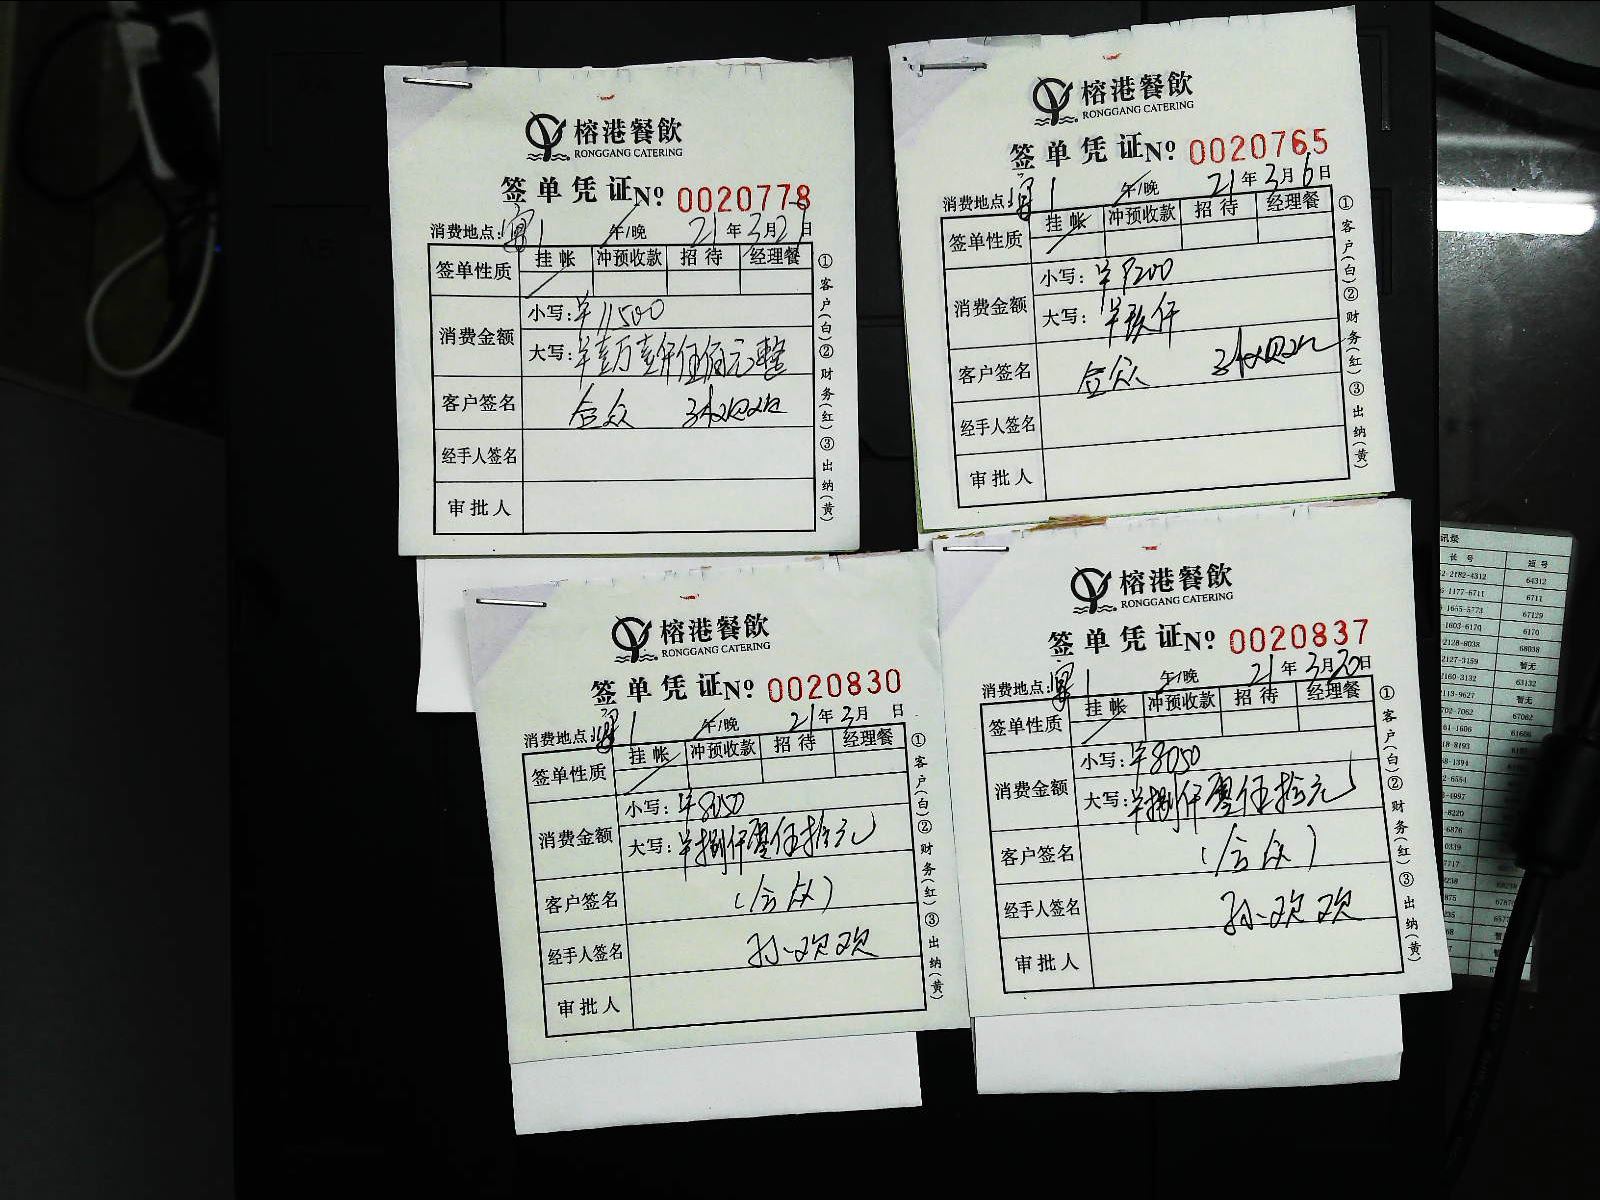 榕港餐飲
RONGGANG CATERING
签单凭证 Nº 0020778
消费地点: 宴1 午/晚 21年3月21日
签单性质 挂帐 冲预收款 招待 经理餐
消费金额 小写: ¥11500
大写: ¥壹万壹仟伍佰元整
客户签名 合众
经手人签名
审批人
①客户(白)②财务(红)③出纳(黄)
榕港餐飲
RONGGANG CATERING
签单凭证 Nº 0020765
消费地点: 宴1 午/晚 21年3月6日
签单性质 挂帐 冲预收款 招待 经理餐
消费金额 小写: ¥9200
大写: ¥玖仟
客户签名 合众
经手人签名
审批人
①客户(白)②财务(红)③出纳(黄)
榕港餐飲
RONGGANG CATERING
签单凭证 Nº 0020830
消费地点: 宴1 午/晚 21年3月 日
签单性质 挂帐 冲预收款 招待 经理餐
消费金额 小写: ¥8050
大写: ¥捌仟零伍拾元
客户签名 (合众)
经手人签名 孙欢欢
审批人
①客户(白)②财务(红)③出纳(黄)
榕港餐飲
RONGGANG CATERING
签单凭证 Nº 0020837
消费地点: 宴1 午/晚 21年3月20日
签单性质 挂帐 冲预收款 招待 经理餐
消费金额 小写: ¥8050
大写: ¥捌仟零伍拾元
客户签名 (合众)
经手人签名 孙欢欢
审批人
①客户(白)②财务(红)③出纳(黄)
讯录
长号 短号
2-2182-4312 64312
1177-6711 6711
1655-5773 67129
1603-6170 6170
2128-8038 68038
2127-3159 暂无
2160-3132 63132
2113-9627 暂无
702-7062 67062